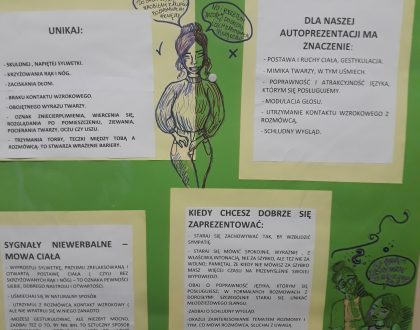 UNIKAJ:
- SKULONEJ, NAPIĘTEJ SYLWETKI.
- KRZYŻOWANIA RĄK I NÓG.
- ZACISKANIA DŁONI.
- BRAKU KONTAKTU WZROKOWEGO.
- OBOJĘTNEGO WYRAZU TWARZY.
- OZNAK ZNIECIERPLIWIENIA, WIERCENIA SIĘ,
ROZGLĄDANIA PO POMIESZCZENIU, ZIEWANIA,
POCIERANIA TWARZY, OCZU CZY USZU.
- TRZYMANIA TORBY, TECZKI MIĘDZY TOBĄ A
ROZMÓWCĄ: TO STWARZA WRAŻENIE BARIERY.
DLA NASZEJ
AUTOPREZENTACJI MA
ZNACZENIE:
- POSTAWA I RUCHY CIAŁA, GESTYKULACJA.
- MIMIKA TWARZY, W TYM UŚMIECH.
- POPRAWNOŚĆ I ATRAKCYJNOŚĆ JĘZYKA,
KTÓRYM SIĘ POSŁUGUJEMY.
- MODULACJA GŁOSU.
- UTRZYMANIE KONTAKTU WZROKOWEGO Z
ROZMÓWCĄ.
- SCHLUDNY WYGLĄD.
SYGNAŁY NIEWERBALNE –
MOWA CIAŁA
- WYPROSTUJ SYLWETKĘ, PRZYJMIJ ZRELAKSOWANĄ I
OTWARTĄ POSTAWĘ CIAŁA ( CZYLI BEZ
SKRZYŻOWANIA RĄK I NÓG) – TO OZNAKA PEWNOŚCI
SIEBIE, DOBREGO NASTROJU I OTWARTOŚCI.
- UŚMIECHAJ SIĘ W NATURALNY SPOSÓB
- UTRZYMUJ Z ROZMÓWCĄ KONTAKT WZROKOWY (
ALE NIE WPATRUJ SIĘ W NIEGO ZADZIORNIE)
- MOŻESZ GESTYKULOWAĆ, ALE NIEZBYT MOCNO,
ZADBAJ TEŻ O TO, BY NIE
KIEDY CHCESZ DOBRZE SIĘ
ZAPREZENTOWAĆ:
- STARAJ SIĘ ZACHOWYWAĆ TAK, BY WZBUDZIĆ
SYMPATIĘ.
- STARAJ SIĘ MÓWIĆ SPOKOJNIE, WYRAŹNIE, Z
WŁAŚCIWĄ INTONACJĄ, NIE ZA SZYBKO, ALE TEŻ NIE ZA
WOLNO; PAMIĘTAJ, ŻE KIEDY NIE MÓWISZ ZA SZYBKO
MASZ WIĘCEJ CZASU NA PRZEMYŚLENIE SWOJEJ
WYPOWIEDZI.
- DBAJ O POPRAWNOŚĆ JĘZYKA, KTÓRYM SIĘ
POSŁUGUJESZ; W FORMALNYCH ROZMOWACH Z
DOROSŁYMI SZCZEGÓLNIE STARAJ SIĘ UNIKAĆ
MŁODZIEŻOWEGO SLANGU.
- ZADBAJ O SCHLUDNY WYGLĄD.
- OKAZUJ ZAINTERESOWANIE TEMATEM ROZMOWY I
TYM, CO MÓWI ROZMÓWCA, SŁUCHAJ Z UWAGĄ